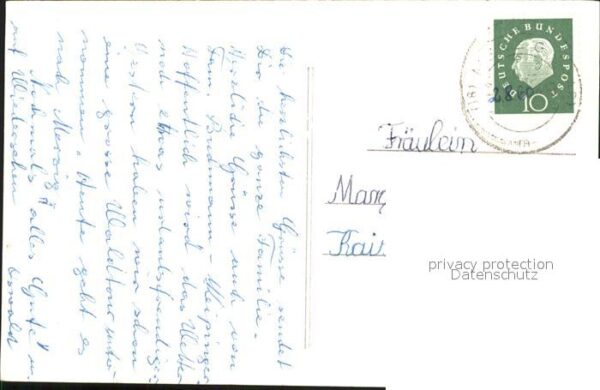 Die herzlichsten Grüsse sendet
Dir die ganze Familie.
Herzliche Grüsse auch von
Fam.
Hoffentlich wird das Wetter
noch etwas urlaubsfreudiger.
haben wir schon
eine grosse Waldtour unter-
nommen. Heute geht es
nach
Nochmals alles Gute! u.
auf Wiedersehen
DEUTSCHE BUNDESPOST
10
Fräulein
privacy protection
Datenschutz